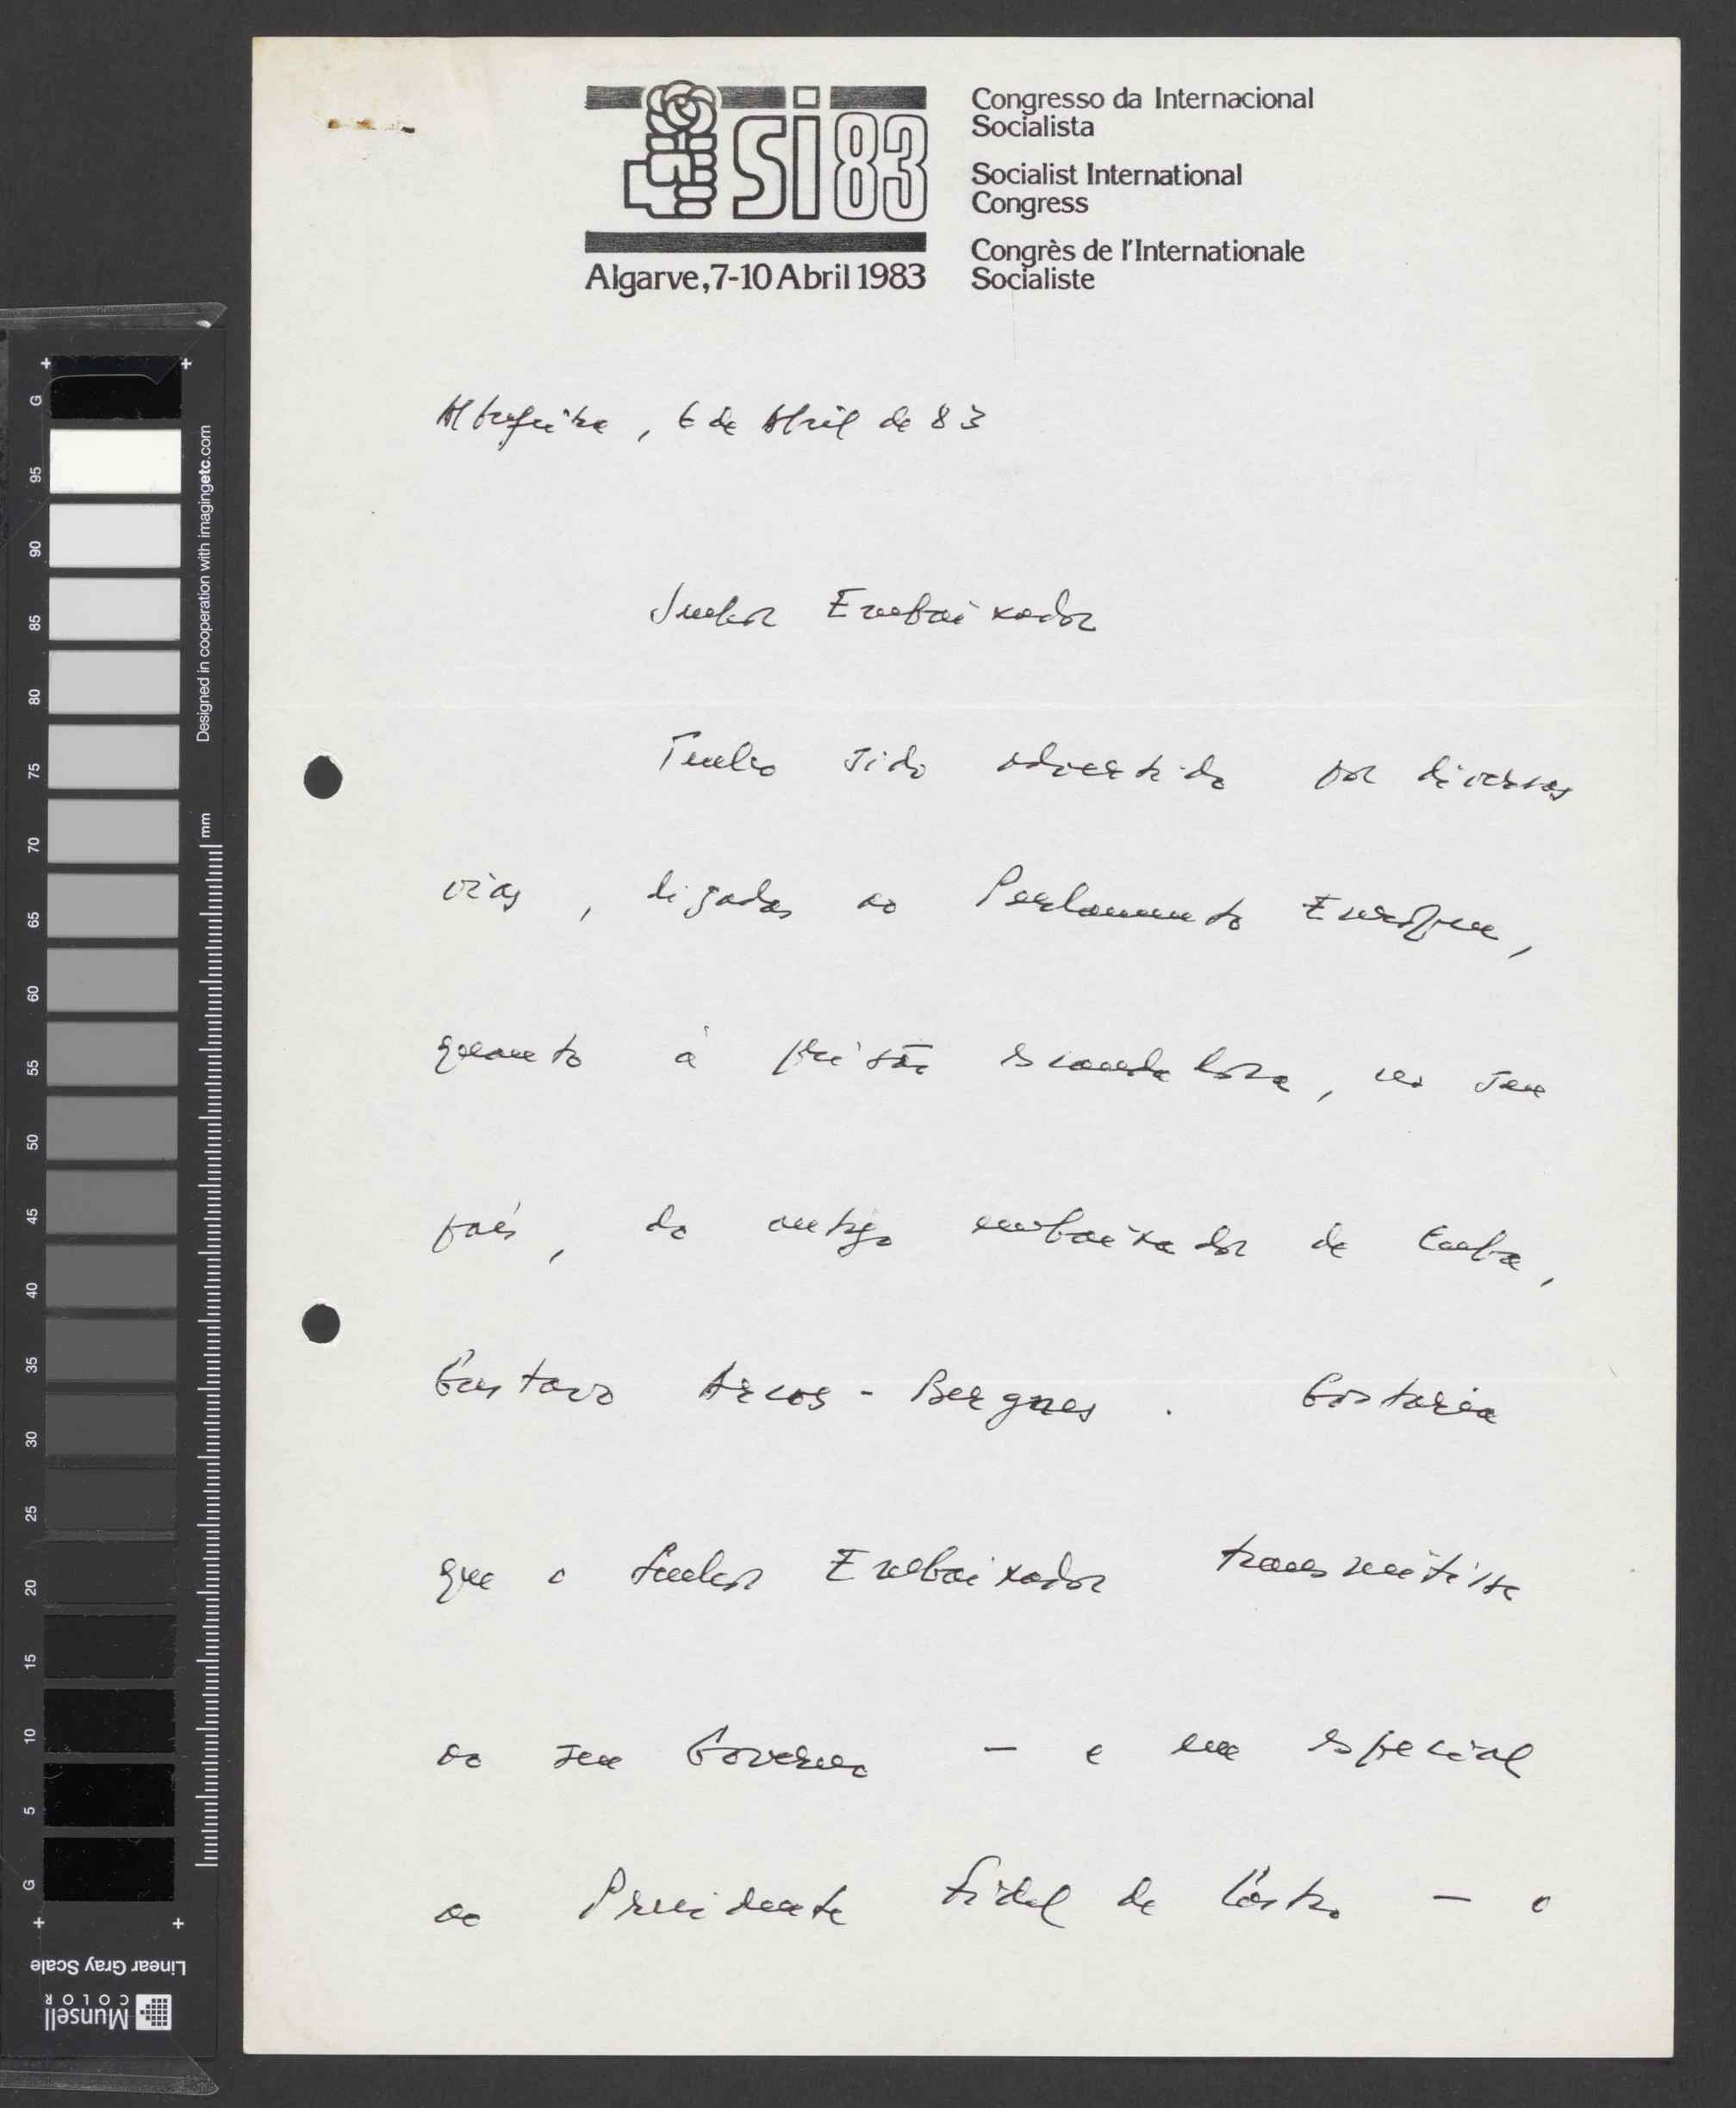 si 83
Algarve, 7-10 Abril 1983
Congresso da Internacional
Socialista
Socialist International
Congress
Congrès de l'Internationale
Socialiste
Albufeira, 6 de Abril de 83
Senhor Embaixador
Tenho sido advertido por diversas
vias, ligadas ao Parlamento Europeu,
quanto à prisão escandalosa, no seu
país, do antigo embaixador de Cuba,
Gustavo Arcos-Bergnes. Gostaria
que o Senhor Embaixador transmitisse
ao seu Governo — e em especial
ao Presidente Fidel de Castro — o
G
95
90
85
80
75
70
65
60
55
50
45
40
35
30
25
20
15
10
5
G
Designed in cooperation with imagingetc.com
mm
Linear Gray Scale
Munsell
COLOR